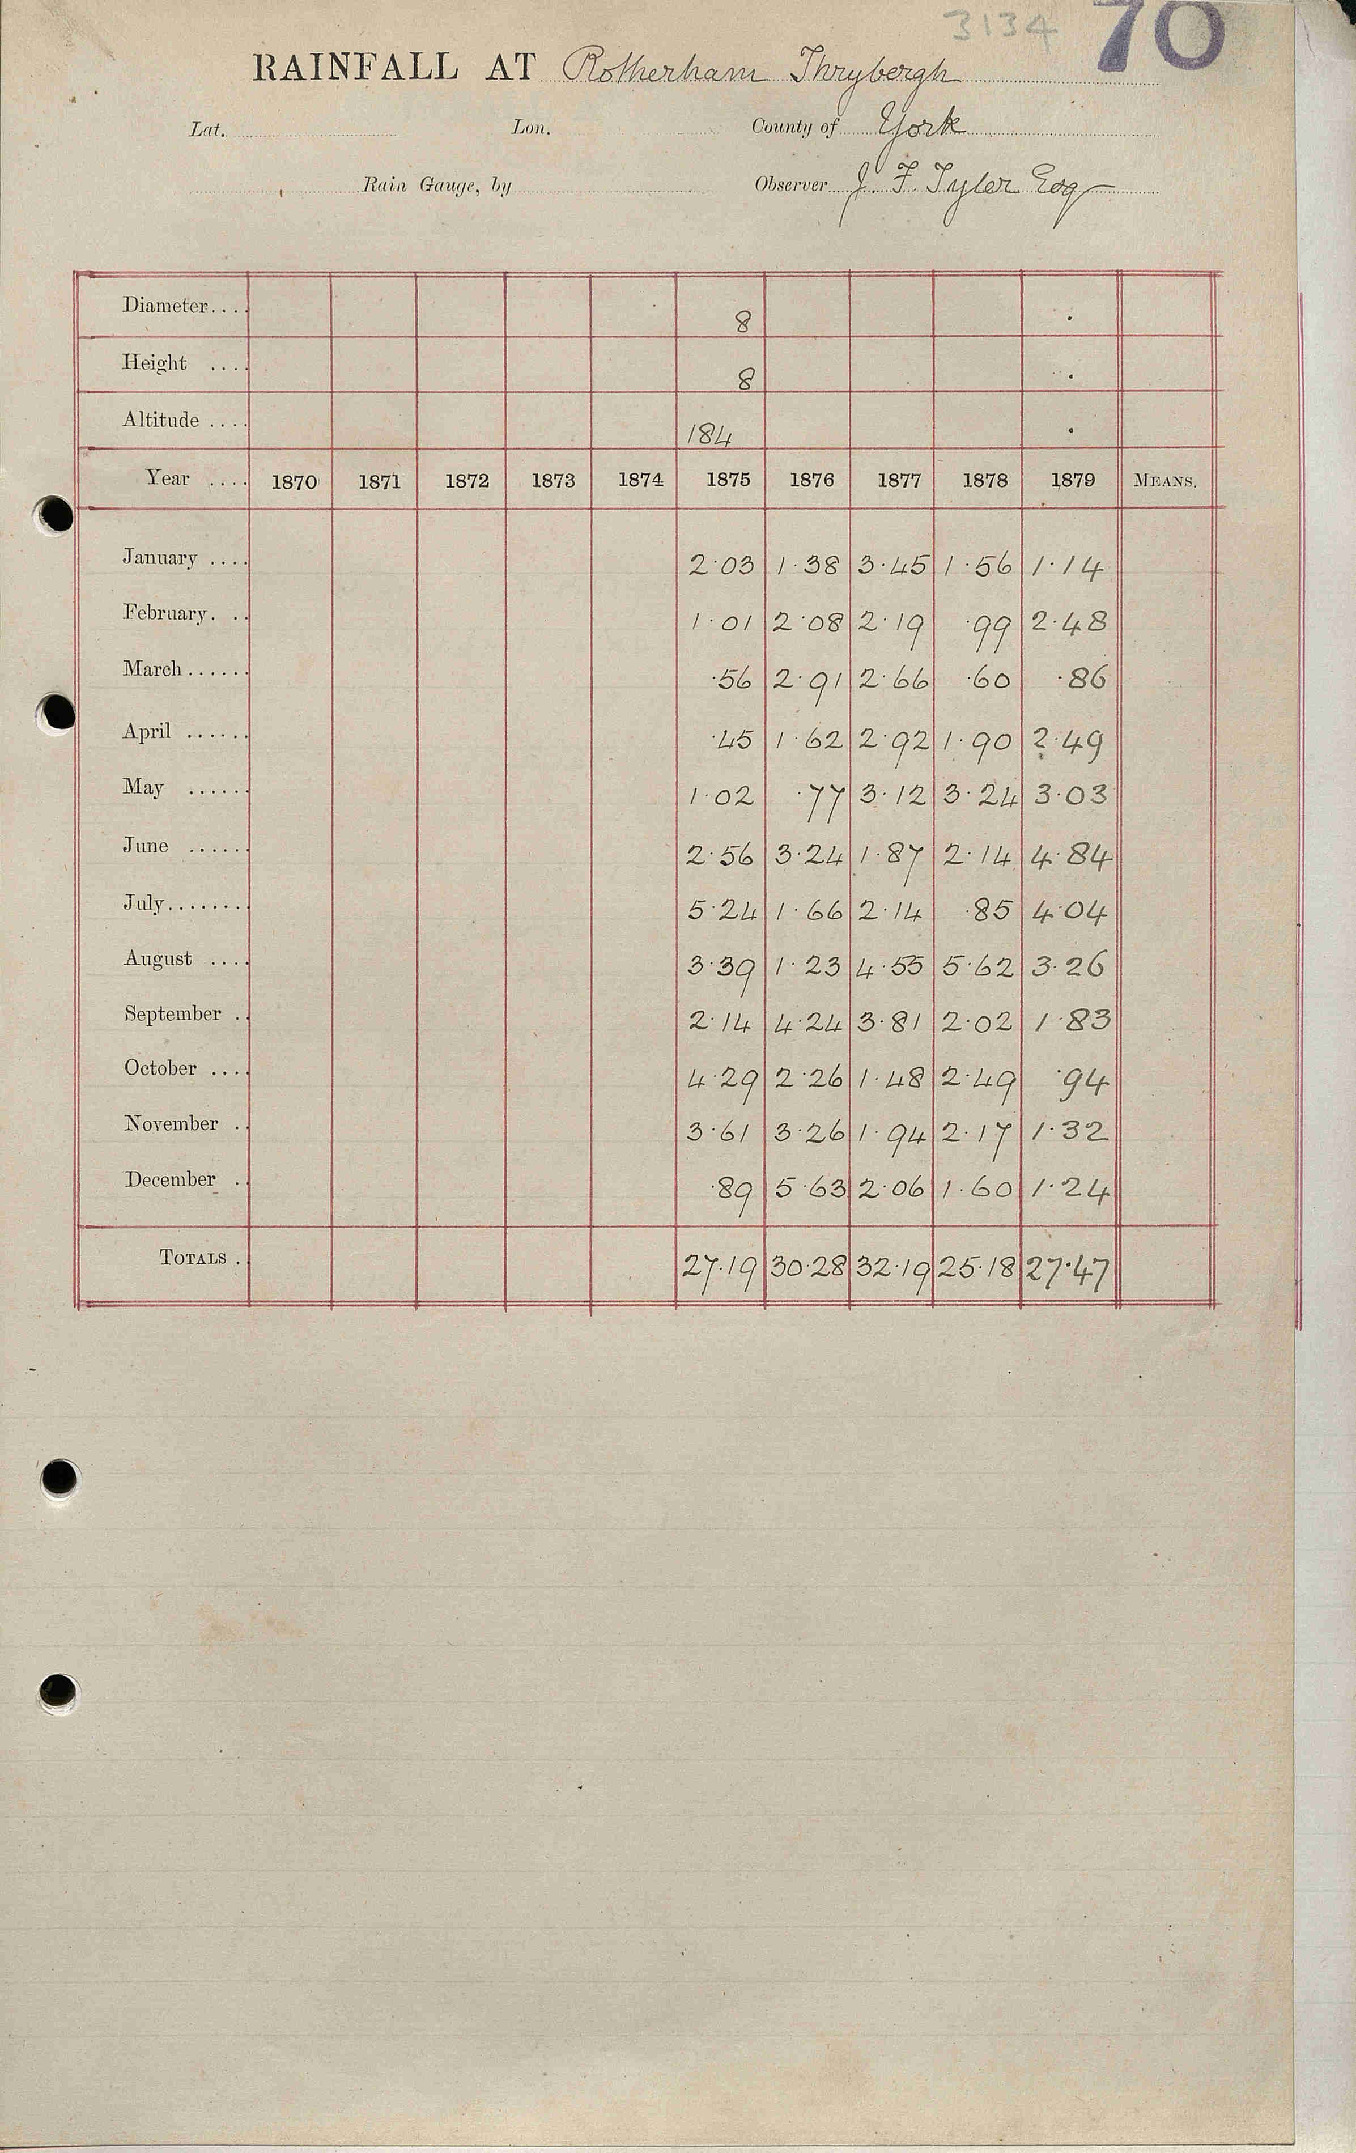 3134 70
RAINFALL AT Rotherham Thrybergh
Lat. Lon. County of York
Rain Gauge, by Observer J. F. Tyler Esq
Diameter.... 8 .
Height .... 8 .
Altitude .... 184 .
Year .... 1870 1871 1872 1873 1874 1875 1876 1877 1878 1879 MEANS.
January .... 2·03 1·38 3·45 1·56 1·14
February. .. 1·01 2·08 2·19 ·99 2·48
March...... ·56 2·91 2·66 ·60 ·86
April ...... ·45 1·62 2·92 1·90 2·49
May ...... 1·02 ·77 3·12 3·24 3·03
June ...... 2·56 3·24 1·87 2·14 4·84
July........ 5·24 1·66 2·14 ·85 4·04
August .... 3·39 1·23 4·55 5·62 3·26
September .. 2·14 4·24 3·81 2·02 1·83
October .... 4·29 2·26 1·48 2·49 ·94
November .. 3·61 3·26 1·94 2·17 1·32
December .. ·89 5·63 2·06 1·60 1·24
TOTALS . 27·19 30·28 32·19 25·18 27·47